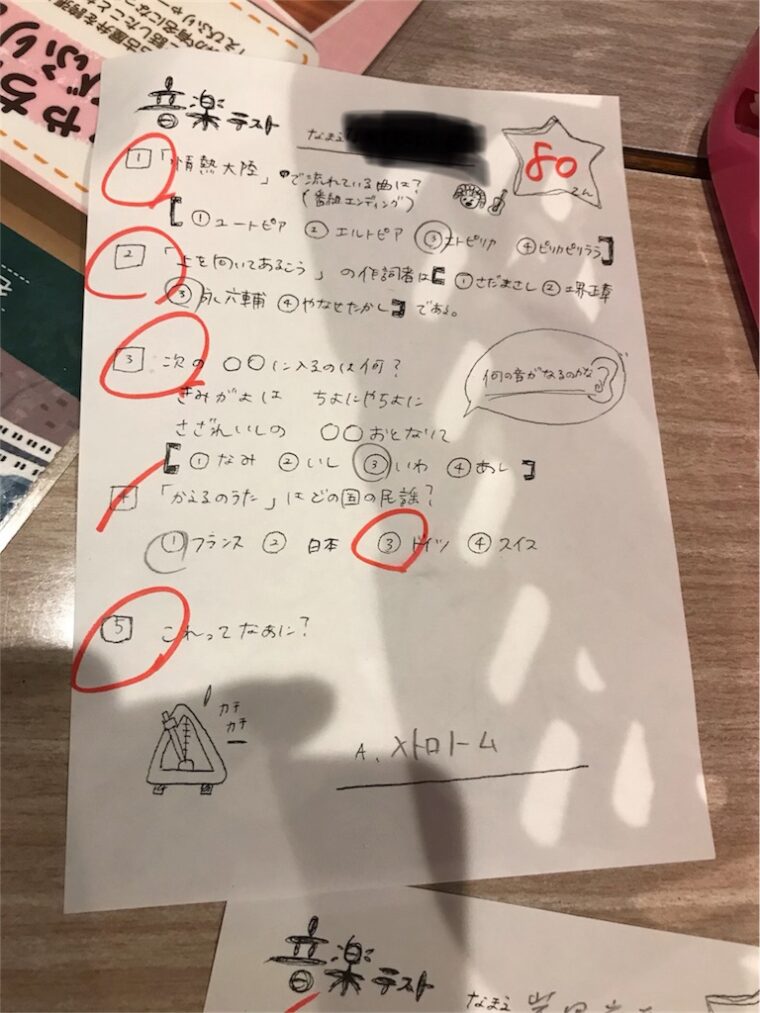 音楽テスト
なまえ
80
てん
1 「情熱大陸」で流れている曲は?
(番組エンディング)
【①ユートピア ②エルトピア ③エトピリカ ④ピリカピリララ】
2 「上を向いてあるこう」の作詞者は【①さだまさし ②堺正章
③永六輔 ④やなせたかし】である。
3 次の○○に入るのは何?
きみがよは ちよにやちよに
さざれいしの ○○おとなりて
【①なみ ②いし ③いわ ④あし】
何の音がなるのかな
4 「かえるのうた」はどの国の民謡?
①フランス ② 日本 ③ドイツ ④スイス
5 これってなあに?
カチ
カチ
A. メトロトーム
音楽テスト
なまえ